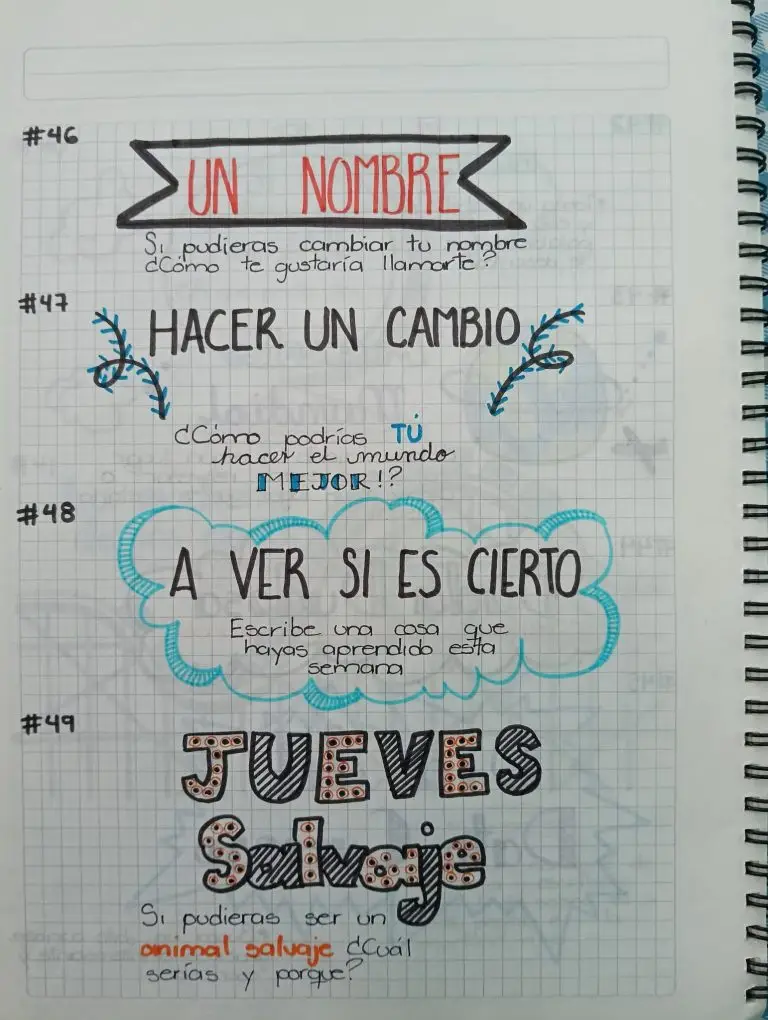 #46
UN NOMBRE
Si pudieras cambiar tu nombre
¿Cómo te gustaría llamarte?
#47
HACER UN CAMBIO
¿Cómo podrías TÚ
hacer el mundo
MEJOR!?
#48
A VER SI ES CIERTO
Escribe una cosa que
hayas aprendido esta
semana
#49
JUEVES
Salvaje
Si pudieras ser un
animal salvaje ¿Cuál
serías y porque?